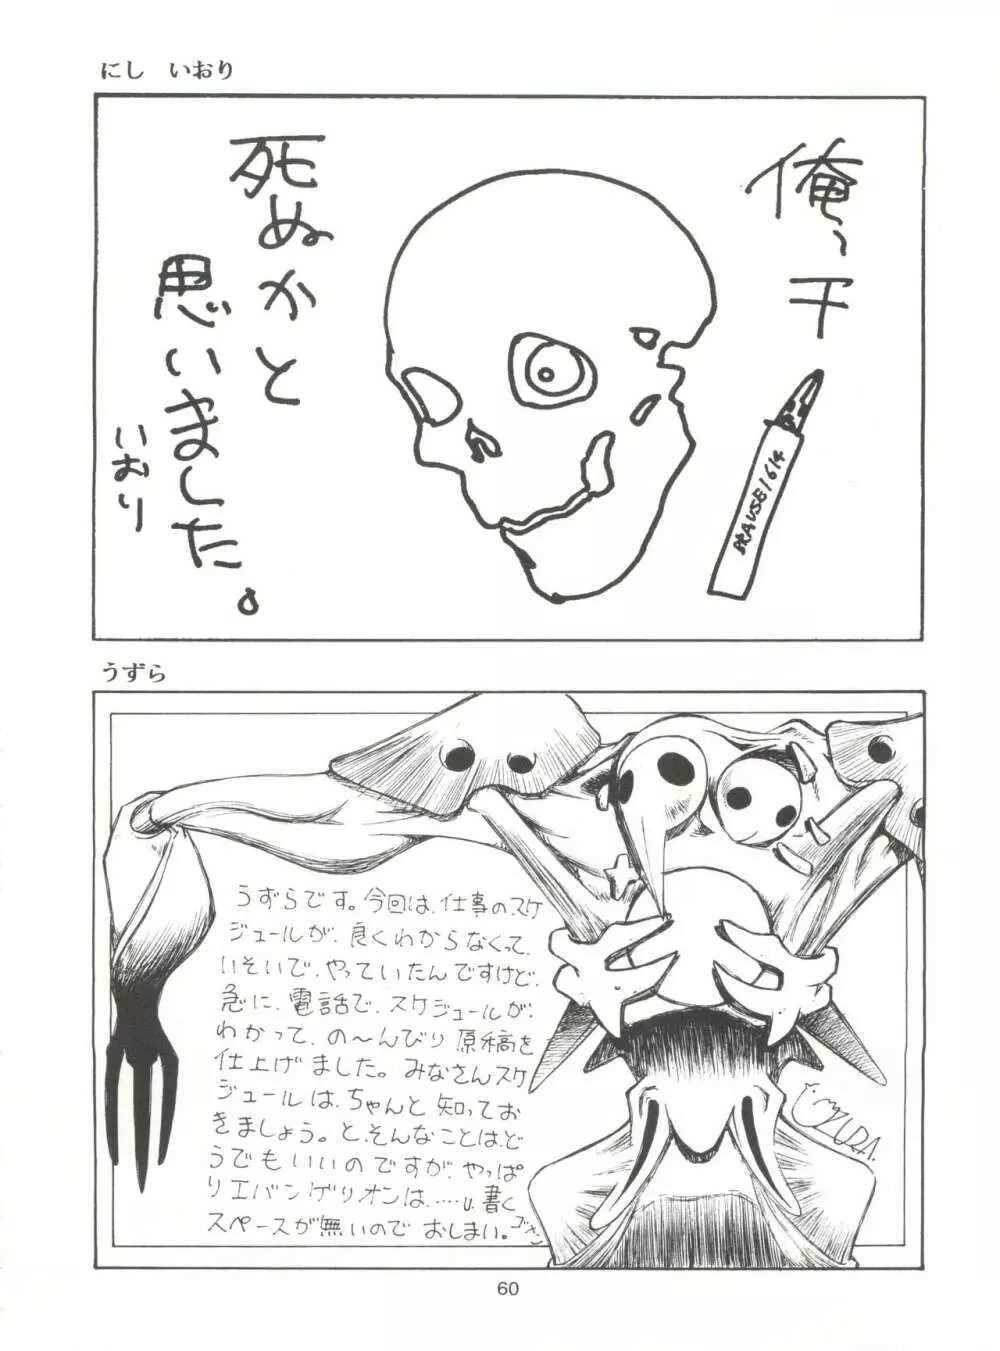 にし　いおり
俺、干
死ぬかと
思いました。
いおり
BRAUSE 1614
うずら
うずらです。今回は、仕事のスケ
ジュールが、良くわからなくって、
いそいで、やっていたんですけど、
急に、電話で、スケジュールが、
わかって、の〜んびり原稿を
仕上げました。みなさんスケ
ジュールは、ちゃんと知ってお
きましょう。と、そんなことは、ど
うでもいいのですが、やっぱ
りエバンゲリオンは、……書く
スペースが無いのでおしまい。
UZURA.
60